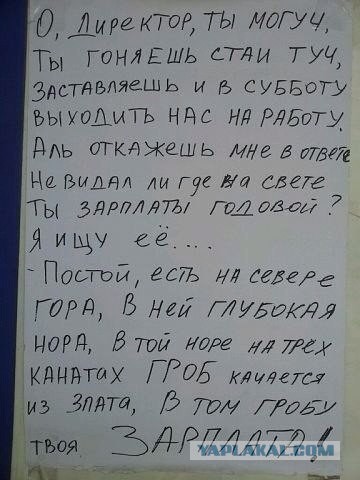 О, Директор, ты могуч,
Ты гоняешь стаи туч,
Заставляешь и в субботу
выходить нас на работу.
Аль откажешь мне в ответе
Не видал ли где на свете
Ты зарплаты годовой?
Я ищу её....
- Постой, есть на севере
гора, в ней глубокая
нора, в той норе на трёх
канатах ГРОБ качается
из злата, в том гробу
твоя ЗАРПЛАТА!
YAPLAKAL.COM